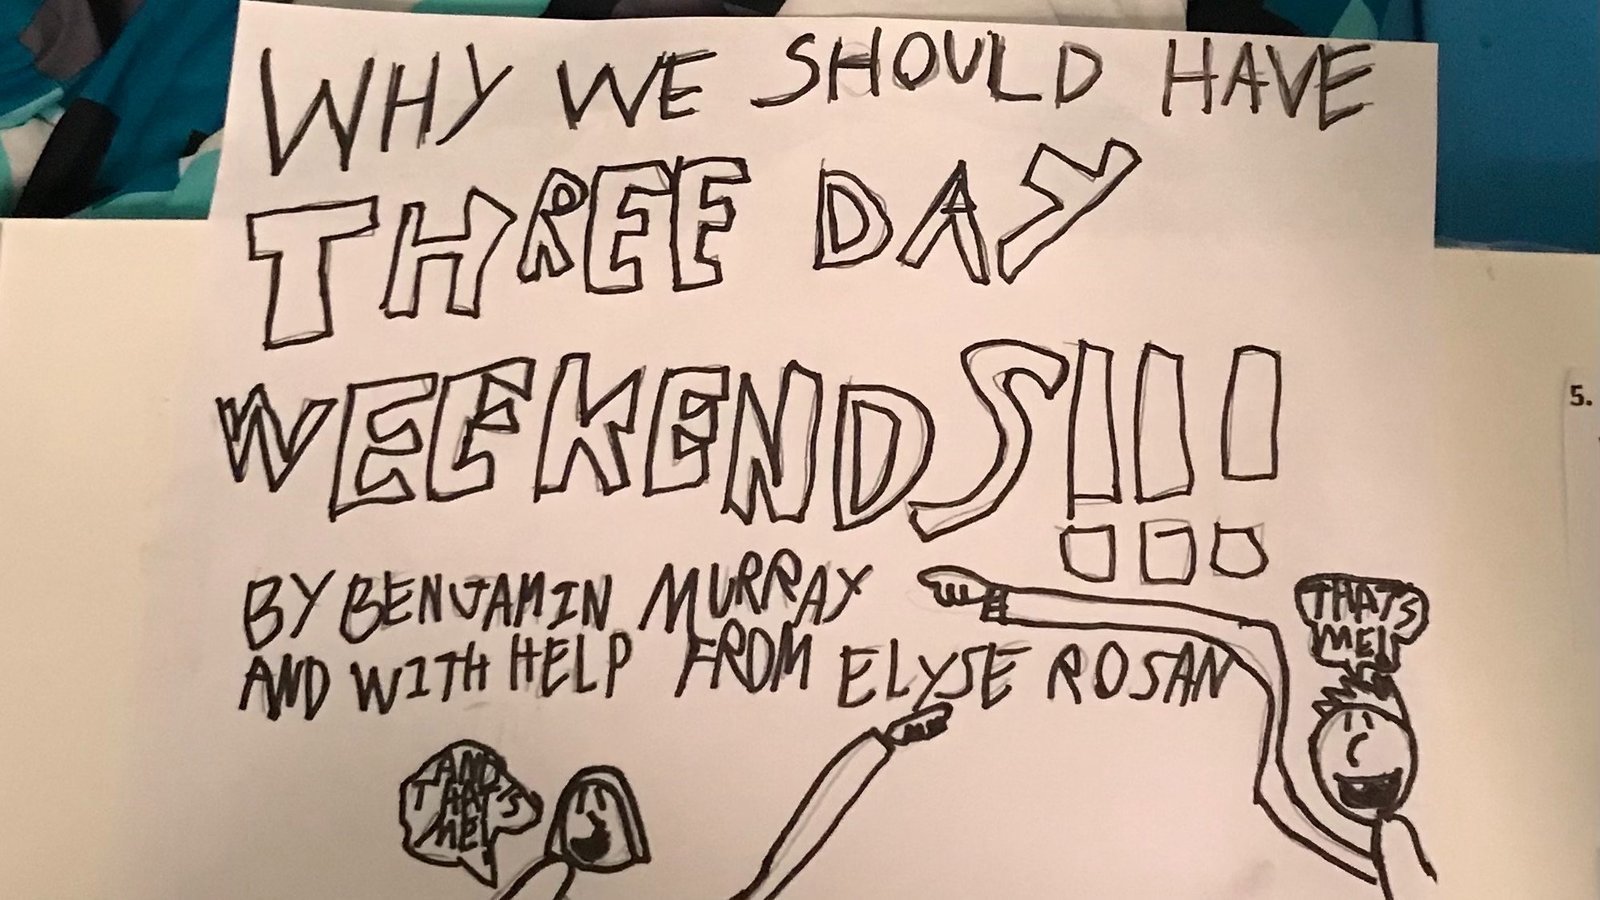 WHY WE SHOULD HAVE
THREE DAY
WEEKENDS!!!
BY BENJAMIN MURRAY
AND WITH HELP FROM ELYSE ROSAN
THAT'S
ME!
AND
THAT'S
ME!
5.